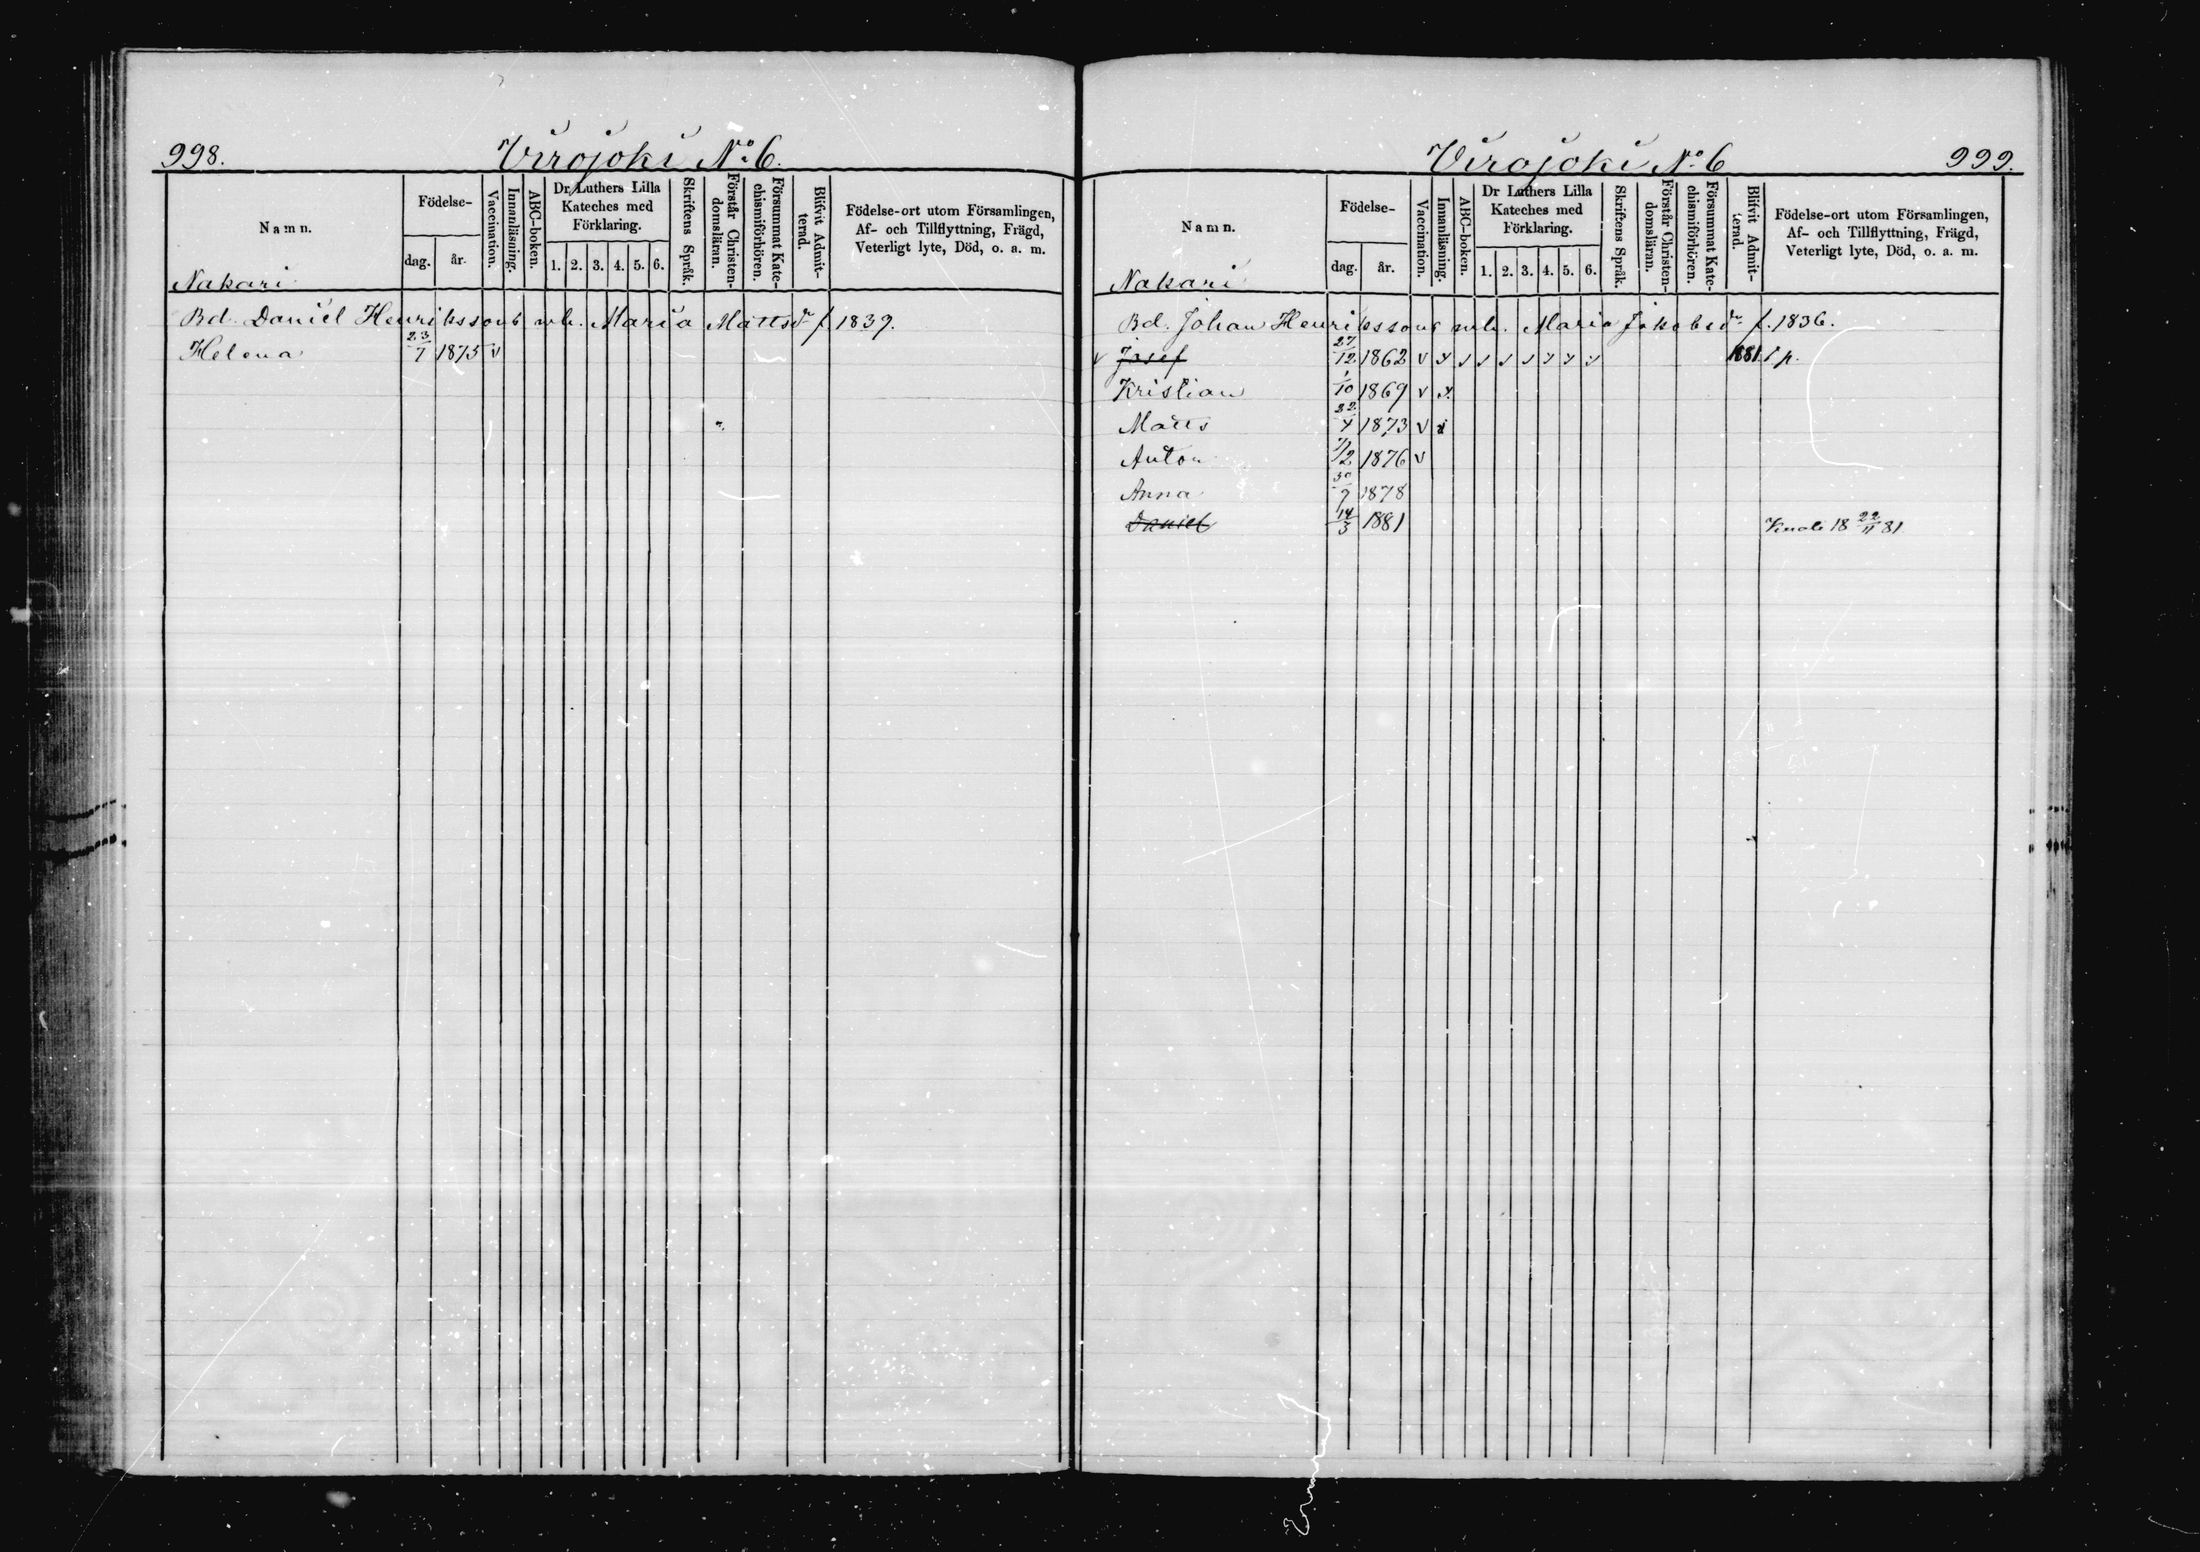 998.
Virojoki No 6.
Namn.
Födelse-
dag.
år.
Vaccination.
Innanläsning.
ABC-boken.
Dr Luthers Lilla
Kateches med
Förklaring.
1. 2. 3. 4. 5. 6.
Skriftens Språk.
Förstår Christen-
domsläran.
Försummat Kate-
chismiförhören.
Blifvit Admit-
terad.
Födelse-ort utom Församlingen,
Af- och Tillflyttning, Frägd,
Veterligt lyte, Död, o. a. m.
Nakari
Bd. Daniel Henrikssons mh. Maria Mattsdr f. 1839.
Helena 23/7 1875 v
Virojoki No 6
999.
Namn.
Födelse-
dag.
år.
Vaccination.
Innanläsning.
ABC-boken.
Dr Luthers Lilla
Kateches med
Förklaring.
1. 2. 3. 4. 5. 6.
Skriftens Språk.
Förstår Christen-
domsläran.
Försummat Kate-
chismiförhören.
Blifvit Admit-
terad.
Födelse-ort utom Församlingen,
Af- och Tillflyttning, Frägd,
Veterligt lyte, Död, o. a. m.
Nakari
Bd. Johan Henrikssons mh. Maria Jakobsdr f. 1836.
v Josef 27/12 1862 v 1881
Kristian 1/10 1869 v
Matts 22/4 1873 v
Anton 1876 v
Anna 30/7 1878
Daniel 14/3 1881 18 22/11 81